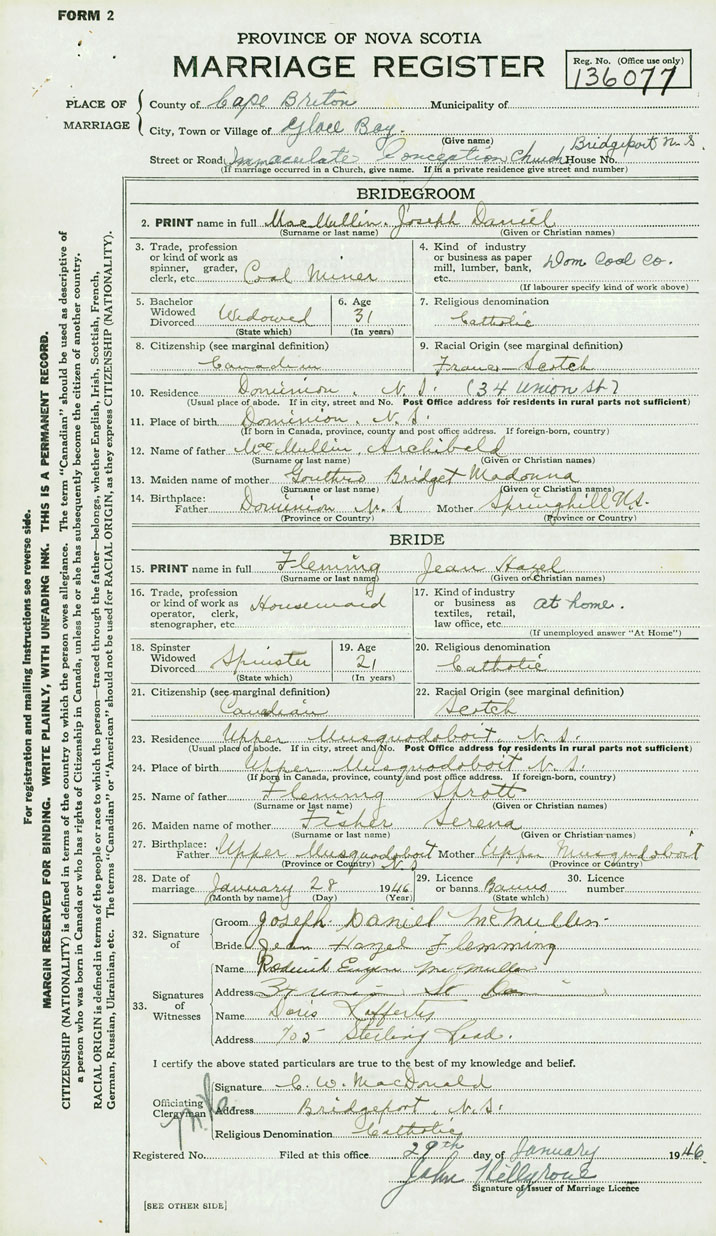 FORM 2
PROVINCE OF NOVA SCOTIA
MARRIAGE REGISTER
Reg. No. (Office use only)
136077
PLACE OF MARRIAGE
County of Cape Breton Municipality of
City, Town or Village of Glace Bay.
(Give name)
Street or Road Immaculate Conception Church House No. Bridgeport N.S.
(If marriage occurred in a Church, give name. If in a private residence give street and number)
BRIDEGROOM
2. PRINT name in full MacMullin. Joseph Daniel
(Surname or last name) (Given or Christian names)
3. Trade, profession or kind of work as spinner, grader, clerk, etc. Coal Miner
4. Kind of industry or business as paper mill, lumber, bank, etc. Dom Coal Co.
(If labourer specify kind of work above)
5. Bachelor Widowed Divorced Widowed
(State which)
6. Age 31
(In years)
7. Religious denomination
Catholic
8. Citizenship (see marginal definition)
Canadian
9. Racial Origin (see marginal definition)
Franco-Scotch
10. Residence Dominion, N.S. (34 Union St)
(Usual place of abode. If in city, street and No. Post Office address for residents in rural parts not sufficient)
11. Place of birth Dominion, N.S.
(If born in Canada, province, county and post office address. If foreign-born, country)
12. Name of father McMullin, Archibald
(Surname or last name) (Given or Christian names)
13. Maiden name of mother Bridget Madonna
(Surname or last name) (Given or Christian names)
14. Birthplace: Father Dominion N.S Mother Springhill N.S.
(Province or Country) (Province or Country)
BRIDE
15. PRINT name in full Fleming Jean Hazel
(Surname or last name) (Given or Christian names)
16. Trade, profession or kind of work as operator, clerk, stenographer, etc. Housemaid
17. Kind of industry or business as textiles, retail, law office, etc. at home.
(If unemployed answer "At Home")
18. Spinster Widowed Divorced Spinster
(State which)
19. Age 21
(In years)
20. Religious denomination
Catholic
21. Citizenship (see marginal definition)
Canadian
22. Racial Origin (see marginal definition)
Scotch
23. Residence Upper Musquodoboit N.S.
(Usual place of abode. If in city, street and No. Post Office address for residents in rural parts not sufficient)
24. Place of birth Upper Musquodoboit N.S.
(If born in Canada, province, county and post office address. If foreign-born, country)
25. Name of father Fleming Sprott
(Surname or last name) (Given or Christian names)
26. Maiden name of mother Fisher Serena
(Surname or last name) (Given or Christian names)
27. Birthplace: Father Upper Musquodoboit N.S Mother Upper Musquodoboit
(Province or Country) (Province or Country)
28. Date of marriage January 28 1946
(Month by name) (Day) (Year)
29. Licence or banns Banns
(State which)
30. Licence number
32. Signature of
Groom Joseph Daniel McMullin.
Bride Jean Hazel Flemming
33. Signatures of Witnesses
Name Roderick Eugene McMullin
Address 34 Union St Dom
Name Doris Lafferty
Address 705 Sterling Road.
I certify the above stated particulars are true to the best of my knowledge and belief.
Officiating Clergyman
Signature C. W. MacDonald
Address Bridgeport, N.S.
Religious Denomination Catholic
Registered No. Filed at this office 29th day of January 1946
John
Signature of Issuer of Marriage Licence
[SEE OTHER SIDE]
For registration and mailing instructions see reverse side.
MARGIN RESERVED FOR BINDING. WRITE PLAINLY, WITH UNFADING INK. THIS IS A PERMANENT RECORD.
CITIZENSHIP (NATIONALITY) is defined in terms of the country to which the person owes allegiance. The term "Canadian" should be used as descriptive of
a person who was born in Canada or who has rights of Citizenship in Canada, unless he or she has subsequently become the citizen of another country.
RACIAL ORIGIN is defined in terms of the people or race to which the person—traced through the father—belongs, whether English, Irish, Scottish, French,
German, Russian, Ukrainian, etc. The terms "Canadian" or "American" should not be used for RACIAL ORIGIN, as they express CITIZENSHIP (NATIONALITY).